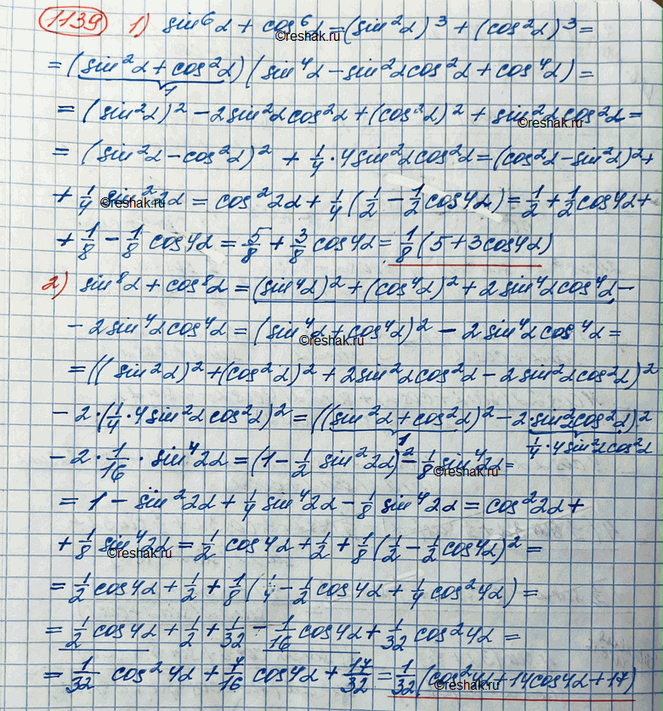 1139 1) sin⁶α + cos⁶α = (sin²α)³ + (cos²α)³ =
©reshak.ru
= (sin²α + cos²α)(sin⁴α − sin²αcos²α + cos⁴α) =
1
= (sin²α)² − 2sin²αcos²α + (cos²α)² + sin²αcos²α =
©reshak.ru
= (sin²α − cos²α)² + 1/4 · 4sin²αcos²α = (cos²α − sin²α)² +
+ 1/4 sin²2α = cos²2α + 1/4(1/2 − 1/2cos4α) = 1/2 + 1/2cos4α +
©reshak.ru
+ 1/8 − 1/8 cos4α = 5/8 + 3/8 cos4α = 1/8(5 + 3cos4α)
2) sin⁸α + cos⁸α = (sin⁴α)² + (cos⁴α)² + 2sin⁴αcos⁴α −
− 2sin⁴αcos⁴α = (sin⁴α + cos⁴α)² − 2sin⁴αcos⁴α =
©reshak.ru
= ((sin²α)² + (cos²α)² + 2sin²αcos²α − 2sin²αcos²α)²
− 2·(1/4 · 4sin²αcos²α)² = ((sin²α + cos²α)² − 2sin²αcos²α)²
1
1/4 · 4sin²αcos²α
− 2 · 1/16 · sin⁴2α = (1 − 1/2 sin²2α)² − 1/8 sin⁴2α =
©reshak.ru
= 1 − sin²2α + 1/4 sin⁴2α − 1/8 sin⁴2α = cos²2α +
+ 1/8 sin⁴2α = 1/2 cos4α + 1/2 + 1/8(1/2 − 1/2cos4α)² =
©reshak.ru
= 1/2 cos4α + 1/2 + 1/8(1/4 − 1/2 cos4α + 1/4 cos²4α) =
= 1/2 cos4α + 1/2 + 1/32 − 1/16 cos4α + 1/32 cos²4α =
= 1/32 cos²4α + 7/16 cos4α + 17/32 = 1/32(cos²4α + 14cos4α + 17)
©reshak.ru